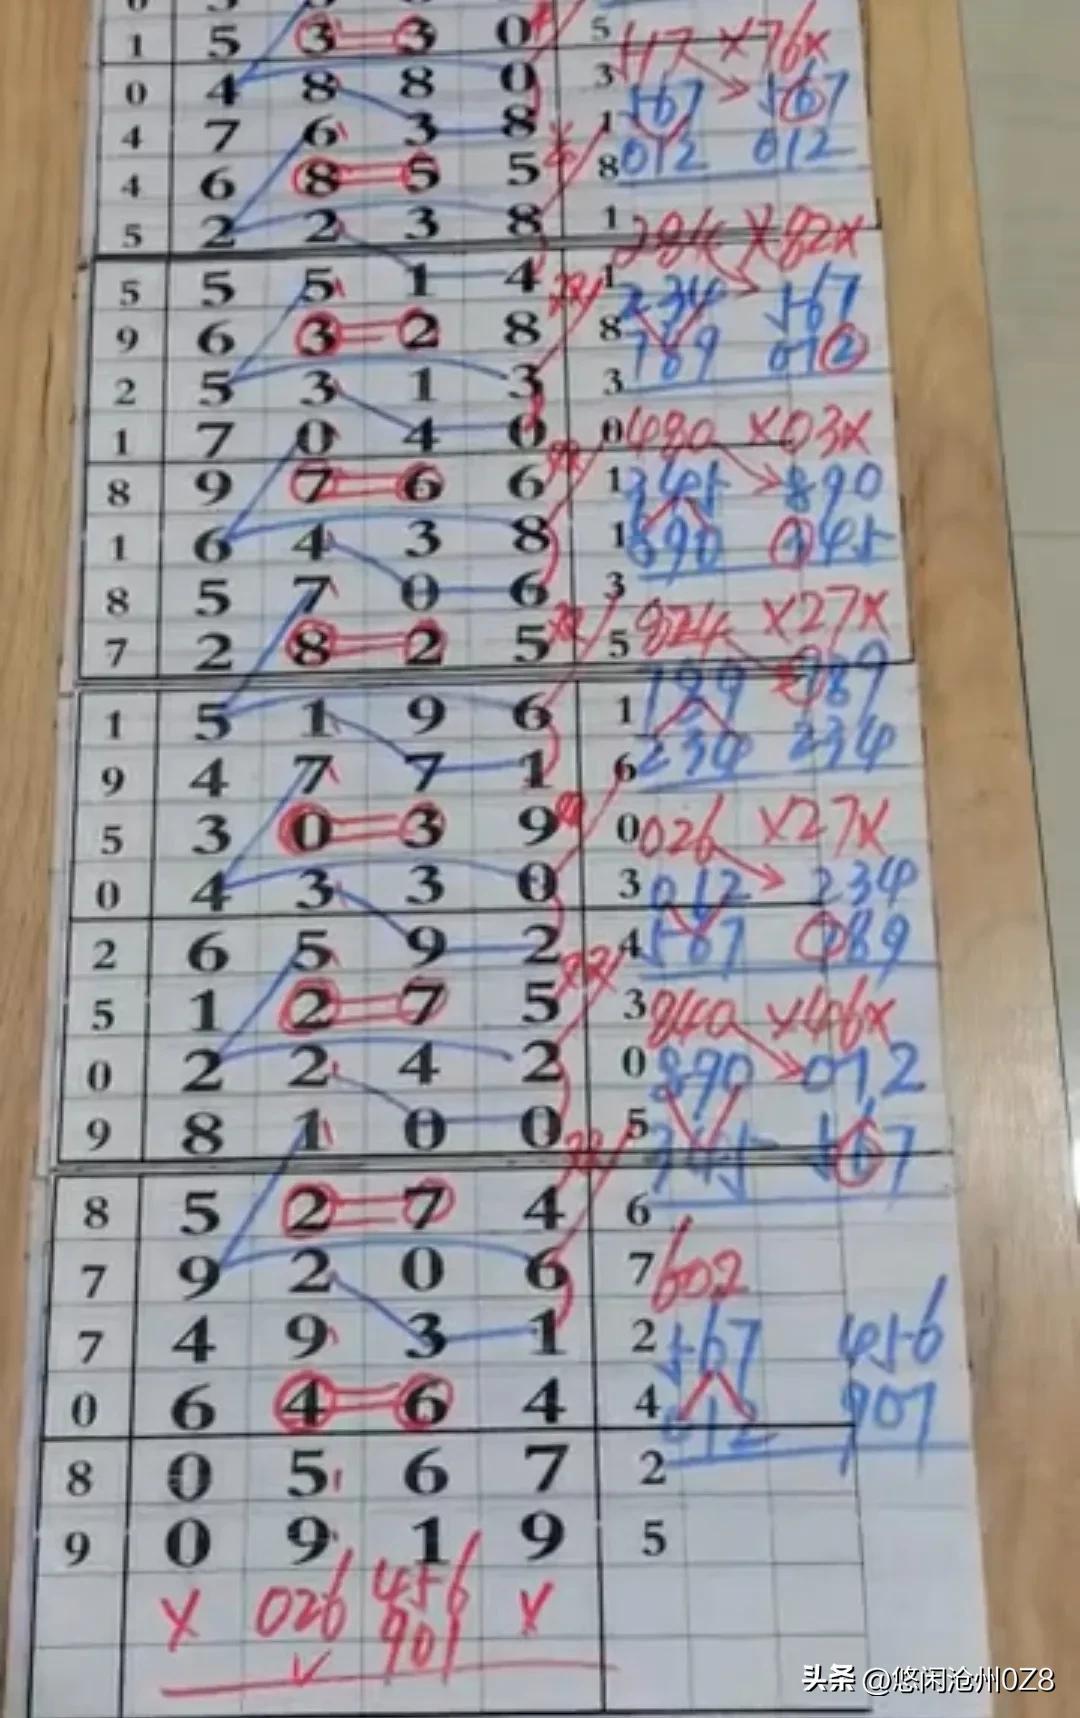 1 5 3 3 0 5 117 X76X
0 4 8 8 0 3 567 567
4 7 6 3 8 1 012 012
4 6 8 5 5 8
5 2 2 3 8 1 284 X82X
5 5 5 1 4 1 234 567
9 6 3 2 8 8 789 012
2 5 3 1 3 3
1 7 0 4 0 0 480 X03X
8 9 7 6 6 1 345 890
1 6 4 3 8 1 890 345
8 5 7 0 6 3 824 X27X
7 2 8 2 5 5
1 5 1 9 6 1 789 789
9 4 7 7 1 6 234 234
5 3 0 3 9 0 026 X27X
0 4 3 3 0 3 012 234
2 6 5 9 2 4 567 789
5 1 2 7 5 3 840 X46X
0 2 2 4 2 0 890 012
9 8 1 0 0 5 345 567
8 5 2 7 4 6
7 9 2 0 6 7 602
7 4 9 3 1 2 567 456
0 6 4 6 4 4 012 901
8 0 5 6 7 2
9 0 9 1 9 5
X 026 456 X
901
头条 @悠闲沧州0Z8